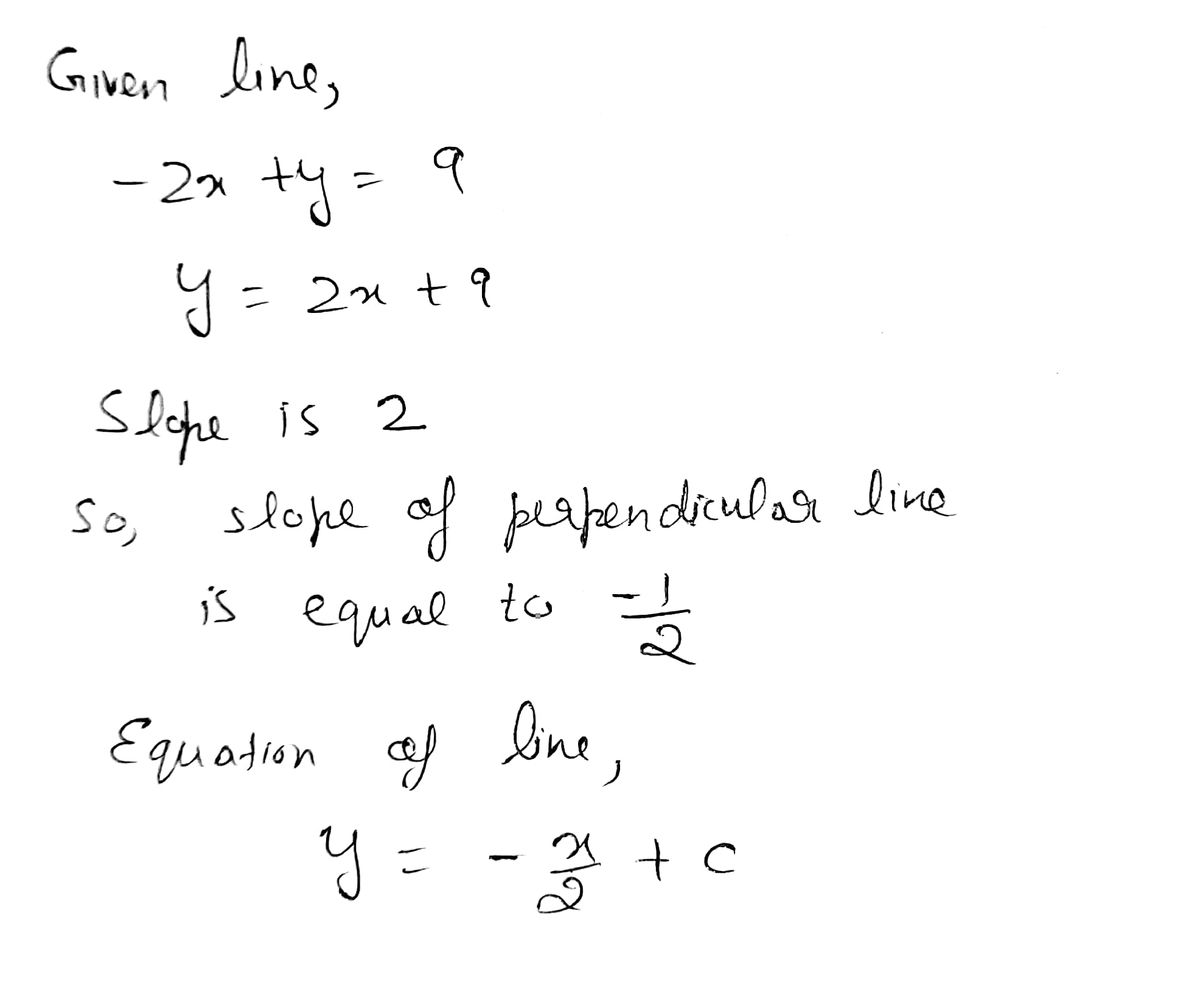 Given line,
-2x + y = 9
y = 2x + 9
Slope is 2
so, slope of perpendicular line
is equal to -1/2
Equation of line,
y = - x/2 + c